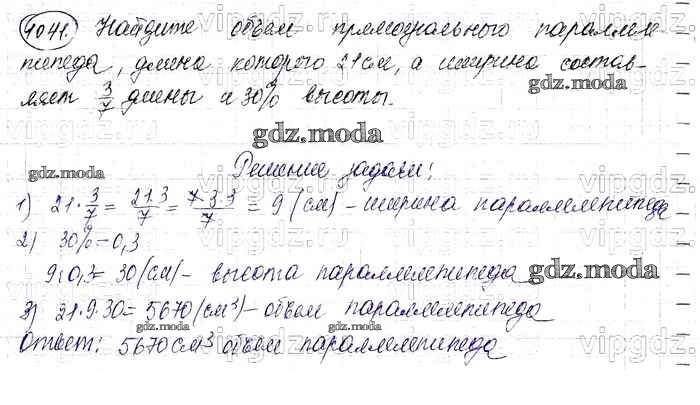 1041. Найдите объем прямоугольного параллеле-
пипеда, длина которого 21см, а ширина состав-
ляет 3/7 длины и 30% высоты.
gdz.moda
gdz.moda
Решение задачи:
gdz.moda
1) 21·3/7 = 21·3/7 = 7·3·3/7 = 9 (см) - ширина параллелепипеда
2) 30% = 0,3
9:0,3 = 30 (см) - высота параллелепипеда
gdz.moda
3) 21·9·30 = 5670 (см³) - объем параллелепипеда
gdz.moda gdz.moda
Ответ: 5670 см³ объем параллелепипеда
vipgdz.ru